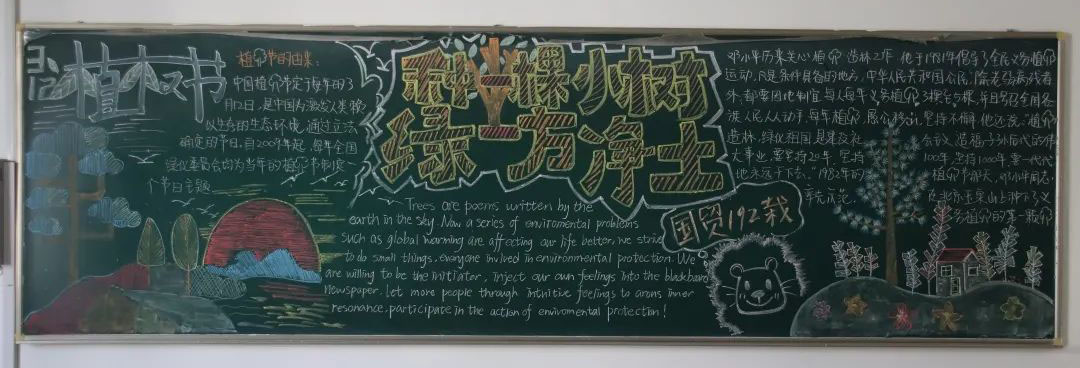 植树节
植树节的由来：
中国植树节定于每年的3
月12日，是中国为激发人类
以生的生态环境，通过立法
确定的节日，自2007年起，每年全国
绿化委员会均为当年的植树节制定一
个节日主题
种一棵小树
绿一方净土
Trees are poems written by the
earth in the sky. Now a series of enviromental problems
such as global warming are affecting our life better, we strive
to do small things, everyone invlued in environmental protection. We
are willing to be the initiator, inject our own feelings into the blackboard
newspaper, let more people through intuitive feelings to arons inner
resonance, participate in the action of enviromental protection!
国贸192栽
邓小平历来关心植树造林工作，他于1981年倡导了全民义务植树
运动，凡是条件具备的地方，中华人民共和国公民，除老弱病残者
外，都要因地制宜每人每年义务植树3棵至5棵，并且号召全国各
族人民人人动手，每年植树，愚公移山，坚持不懈，他还说：植树
造林，绿化祖国是建设社会主义，造福子孙后代的伟
大事业，要坚持20年，坚持100年，坚持1000年，要一代一代
地永远干下去。"1982年的植树节那天，邓小平同志，
率先示范，在北京玉泉山上种下了义
务植树的第一棵树